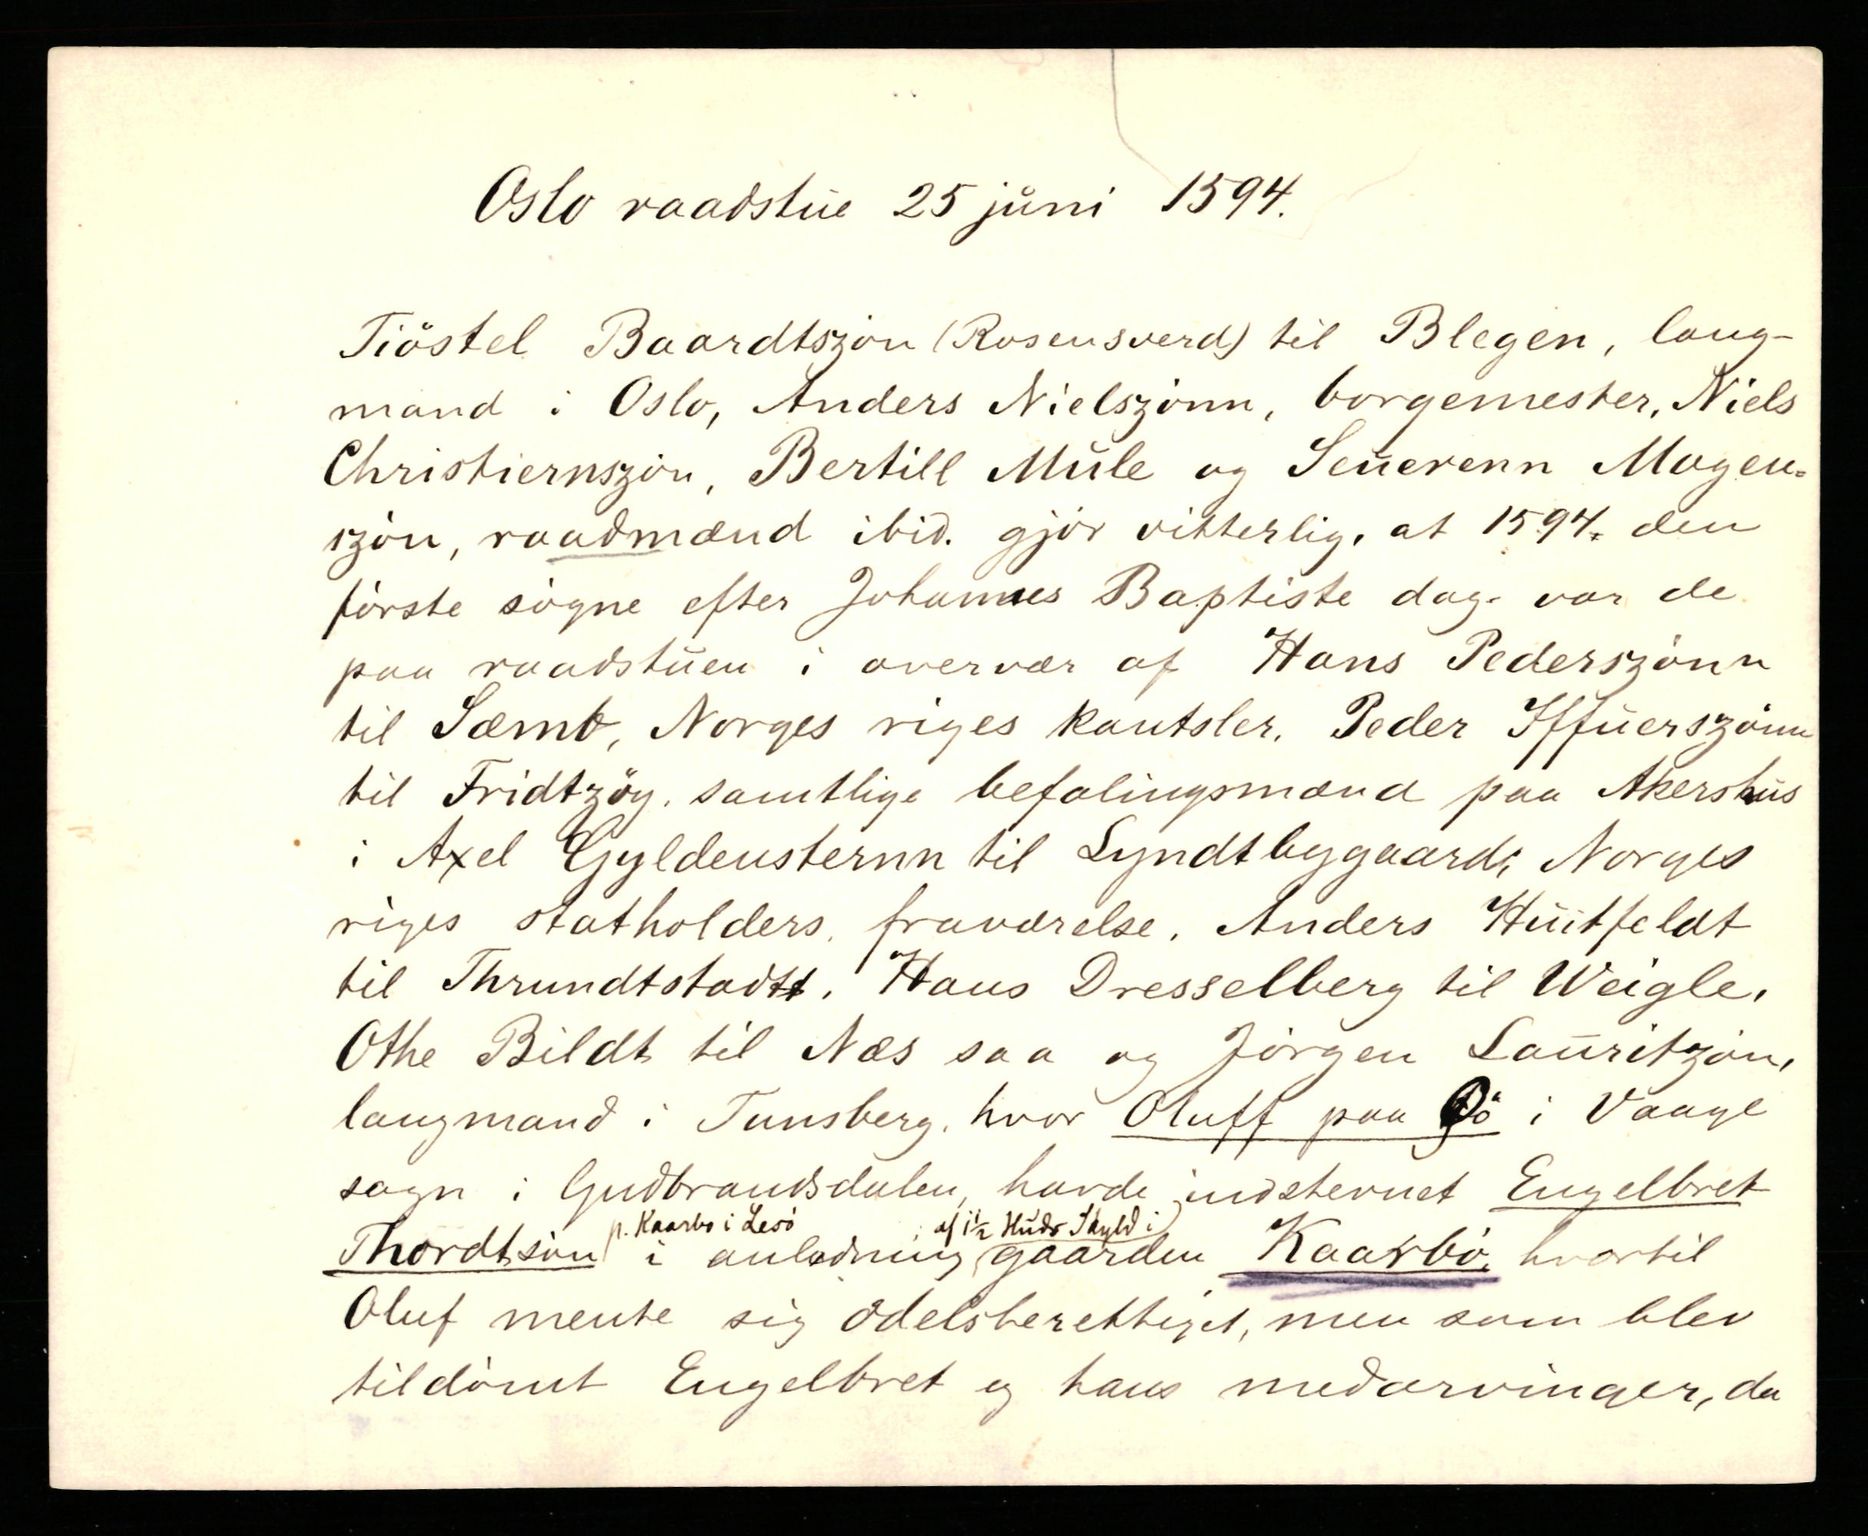 Oslo raadstue 25 juni 1594.
Tiöstel Baardtszön (Rosensverd) til Blegen, laug-
mand i Oslo, Anders Nielszönn, borgemester, Niels
Christiernszön, Bertill Mule og Seuerenn Mogen-
szön, raadmænd ibid. gjör vitterlig, at 1594, den
förste sögne efter Johannes Baptiste dag var de
paa raadstuen i overvær af Hans Pederszönn
til Sæmb, Norges riges kantsler, Peder Iffuerszönn
til Fridtzöy, samtlige befalingsmænd paa Akershus
i Axel Gyldensternn til Lyndtbygaard, Norges
riges statholders, fraværelse, Anders Huitfeldt
til Thrundtstadt, Hans Dresselberg til Weigle,
Othe Bildt til Næs saa og Jörgen Lauritzön,
laugmand i Tunsberg, hvor Oluff paa Bö i Vaage
sogn i Gudbrandsdalen, havde indstevnet Engelbret
p. Kaarbo i Lesö af 1 1/2 Huds Skyld i
Thordtsön i anledning gaarden Kaarbö, hvortil
Oluf mente sig odelsberettiget, men som blev
tildömt Engelbret og hans medarvinger, da